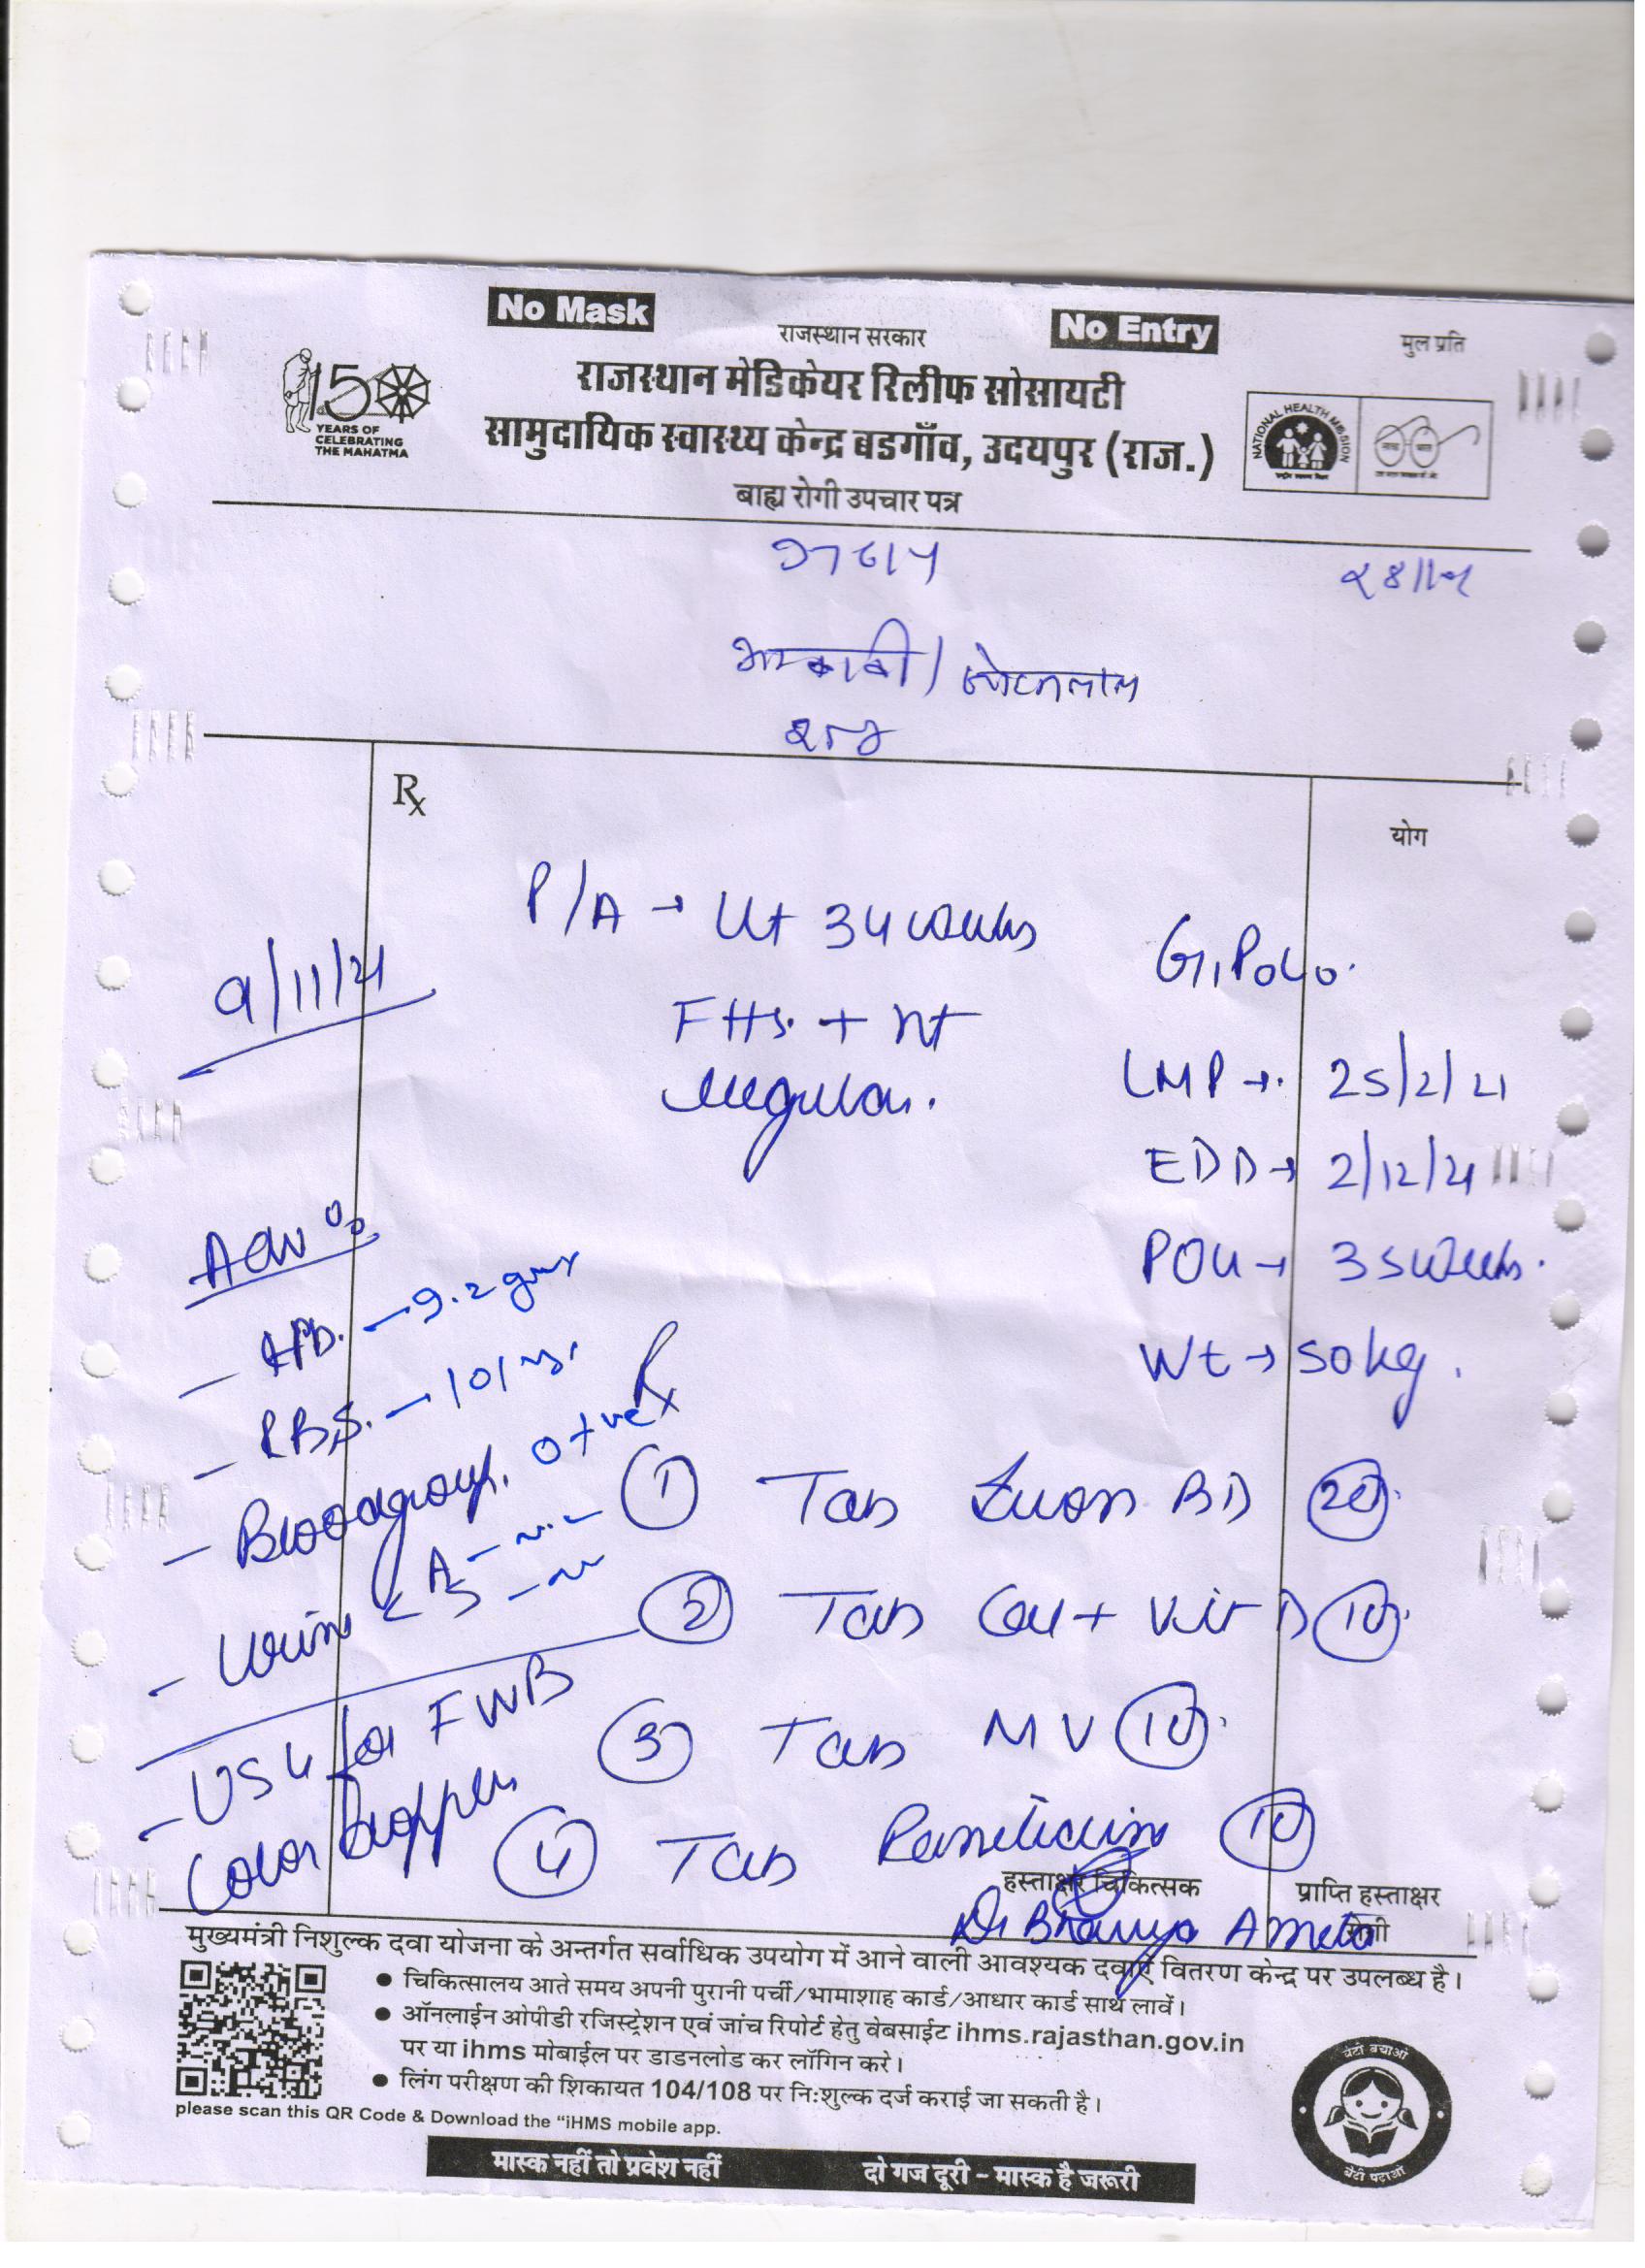 No Mask
राजस्थान सरकार
No Entry
मुल प्रति
150
YEARS OF
CELEBRATING
THE MAHATMA
राजस्थान मेडिकेयर रिलीफ सोसायटी
सामुदायिक स्वास्थ्य केन्द्र बडगाँव, उदयपुर (राज.)
NATIONAL HEALTH MISSION
बाह्य रोगी उपचार पत्र
Rx
योग
P/A → Ut 34 weeks
G1P0L0.
9/11/21
FHS. + nt
regular.
LMP →. 25/2/21
EDD → 2/12/21
POG → 35 weeks.
Wt → 50 kg.
Adv:
- HB. - 9.2 gms
- RBS. - 101
- Bloodgroup. O+ve
- Urine < A - Nil
S -
- USG for FWB
Color Doppler
Rx
① Tab BD 20.
② Tab Cal + Vit D 10.
③ Tab MV 10.
④ Tab Ranitidine 10
हस्ताक्षर चिकित्सक
प्राप्ति हस्ताक्षर
Dr Bhavya Ameta
मुख्यमंत्री निशुल्क दवा योजना के अन्तर्गत सर्वाधिक उपयोग में आने वाली आवश्यक दवाएं वितरण केन्द्र पर उपलब्ध है।
• चिकित्सालय आते समय अपनी पुरानी पर्ची/भामाशाह कार्ड/आधार कार्ड साथ लावें।
• ऑनलाईन ओपीडी रजिस्ट्रेशन एवं जांच रिपोर्ट हेतु वेबसाईट ihms.rajasthan.gov.in
पर या ihms मोबाईल पर डाडनलोड कर लॉगिन करे।
• लिंग परीक्षण की शिकायत 104/108 पर नि:शुल्क दर्ज कराई जा सकती है।
please scan this QR Code & Download the "iHMS mobile app.
बेटी बचाओ
बेटी पढाओ
मास्क नहीं तो प्रवेश नहीं
दो गज दूरी - मास्क है जरूरी